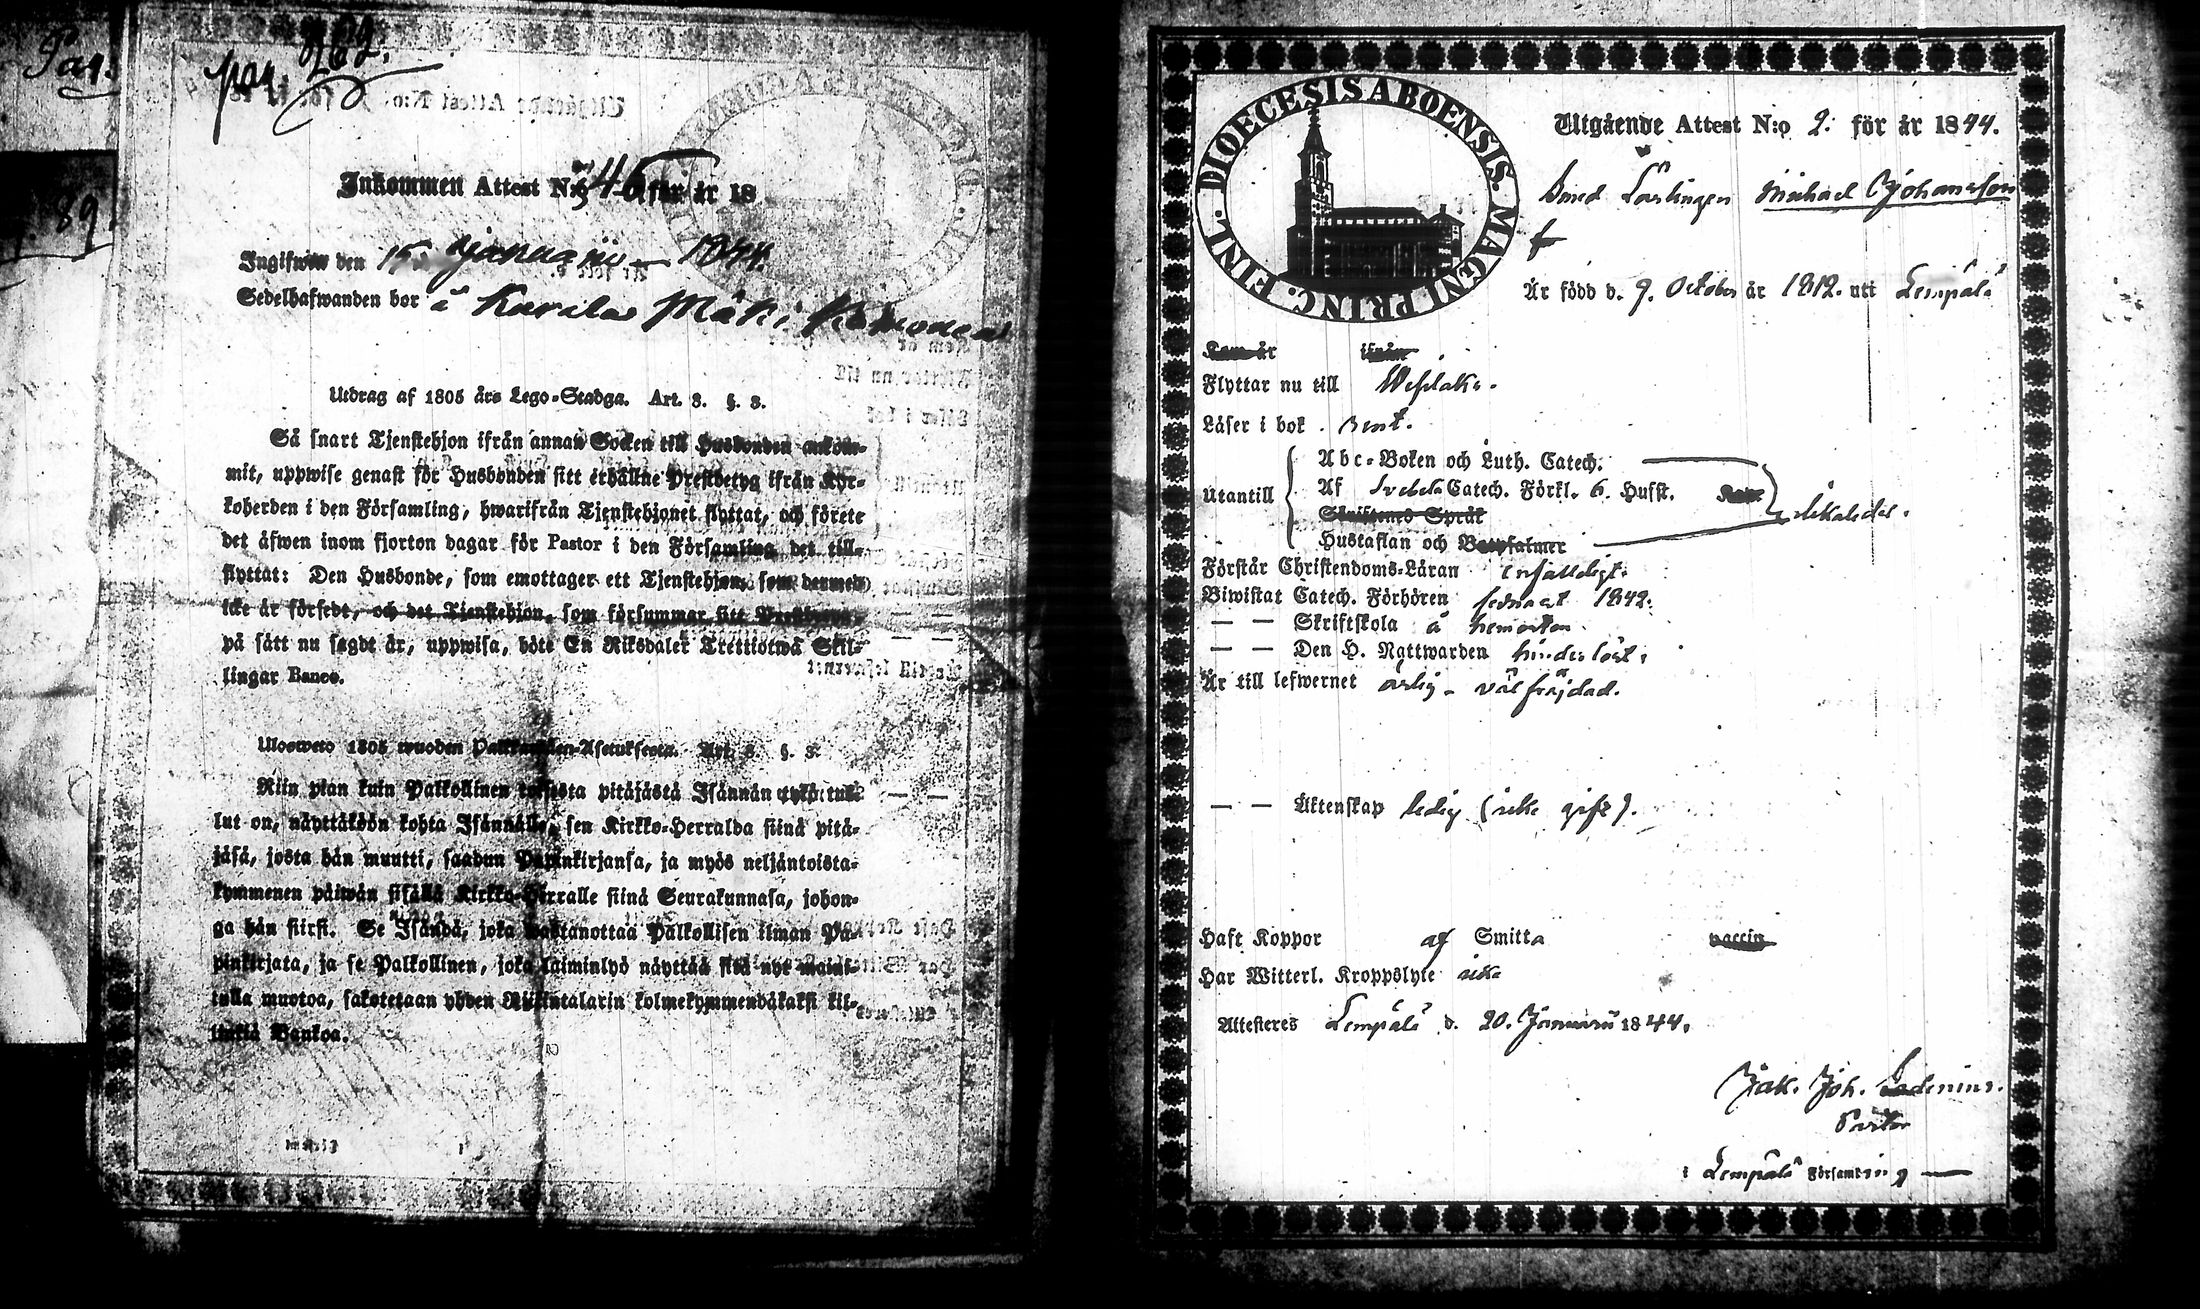 Pag.
89.
pag. 262.
Inkommen Attest N:o 345 för år 18
Ingifwen den 15 Januarii 1844.
Sedelhafwanden bor å Karila Mäki
Utdrag af 1805 års Lego-Stadga. Art. 3. §. 3.
Så snart Tjenstehjon ifrån annan Socken till Husbonden ankom-
mit, uppwise genast för Husbonden sitt erhållne Prestbetyg ifrån Kyr-
koherden i den Församling, hwarifrån Tjenstehjonet flyttat, och förete
det äfwen inom fjorton dagar för Pastor i den Församling det till-
flyttat: Den Husbonde, som emottager ett Tjenstehjon, som dermed
icke är försedt, och det Tjenstehjon, som försummar sitt Prestbetyg,
på sätt nu sagdt är, uppwisa, böte En Riksdaler Trettiotwå Skil-
lingar Banco.
Ulosweto 1805 wuoden Palkkawäen-Asetuksesta. Art. 3. §. 3.
Niin pian kuin Palkollinen toisesta pitäjästä Isännän tykö tul-
lut on, näyttäköön kohta Isännälle, sen Kirkko-Herralda siinä pitä-
jäsä, josta hän muutti, saadun Papinkirjansa, ja myös neljäntoista-
kymmenen päiwän sisällä Kirkko-Herralle siinä Seurakunnasa, johon-
ga hän siirsi. Se Isändä, joka wastanottaa Palkollisen ilman Pa-
pinkirjata, ja se Palkollinen, joka laiminlyö näyttää sitä nyt maini-
tulla muotoa, sakotetaan yhden Riikintalarin kolmekymmendäkaksi kil-
linkiä Bankoa.
DIOECESIS ABOENSIS. MAGNI PRINC. FINL.
Utgående Attest N:o 2. för år 1844.
Smed Lärlingen Michael Johansson
Är född d. 9. October år 1812. uti Lempälä
Kom år ifrån
Flyttar nu till Wesilaks.
Läser i bok rent.
Utantill
Abc-Boken och Luth. Catech.
Af Svebel. Catech. Förkl. 6. Hufst. Kan.
Skriftenes Språk
Hustaflan och Botpsalmer
likaledes.
Förstår Christendoms-Läran enfaldigt.
Biwistat Catech. Förhören sednast 1842.
— — Skriftskola å hemorten
— — Den H. Nattwarden hinderlöst.
Är till lefwernet ärlig. välfräjdad.
— — Äktenskap ledig (icke gift).
Haft Koppor af Smitta vaccin
Har Witterl. Kroppslyte icke
Attesteres Lempälä d. 20. Januarii 1844.
Jak. Joh. Ladenius.
Pastor
i Lempälä Församling —